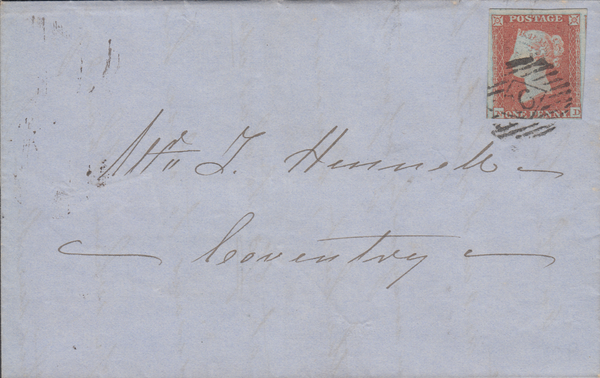 POSTAGE
ONE PENNY
Mr J. Hennell
Coventry